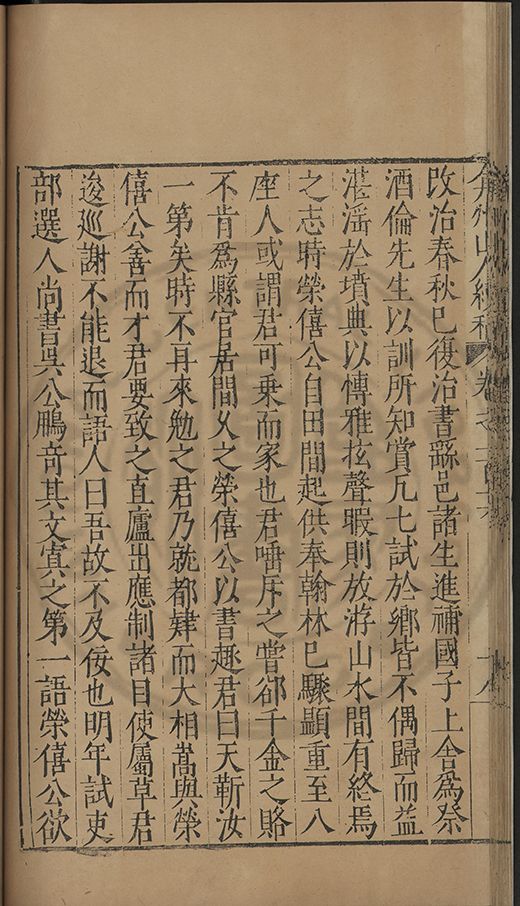 改治春秋已復治書繇邑諸生進補國子上舍爲祭
酒倫先生以訓所知賞凡七試於鄉皆不偶歸而益
湛滛於墳典以愽雅㧋聲暇則放游山水間有終焉
之志時榮僖公自田間起供奉翰林已驟顯重至八
座人或謂君可乗而家也君唾斥之嘗郤千金之賂
不肯爲縣官居間乆之榮僖公以書趣君曰天靳汝
一第矣時不再來勉之君乃就都肄而大相嵩與榮
僖公善而才君要致之直廬出應制諸目使屬草君
逡廵謝不能退而語人曰吾故不及佞也明年試吏
部選人尚書吳公鵬竒其文寘之第一語榮僖公欲